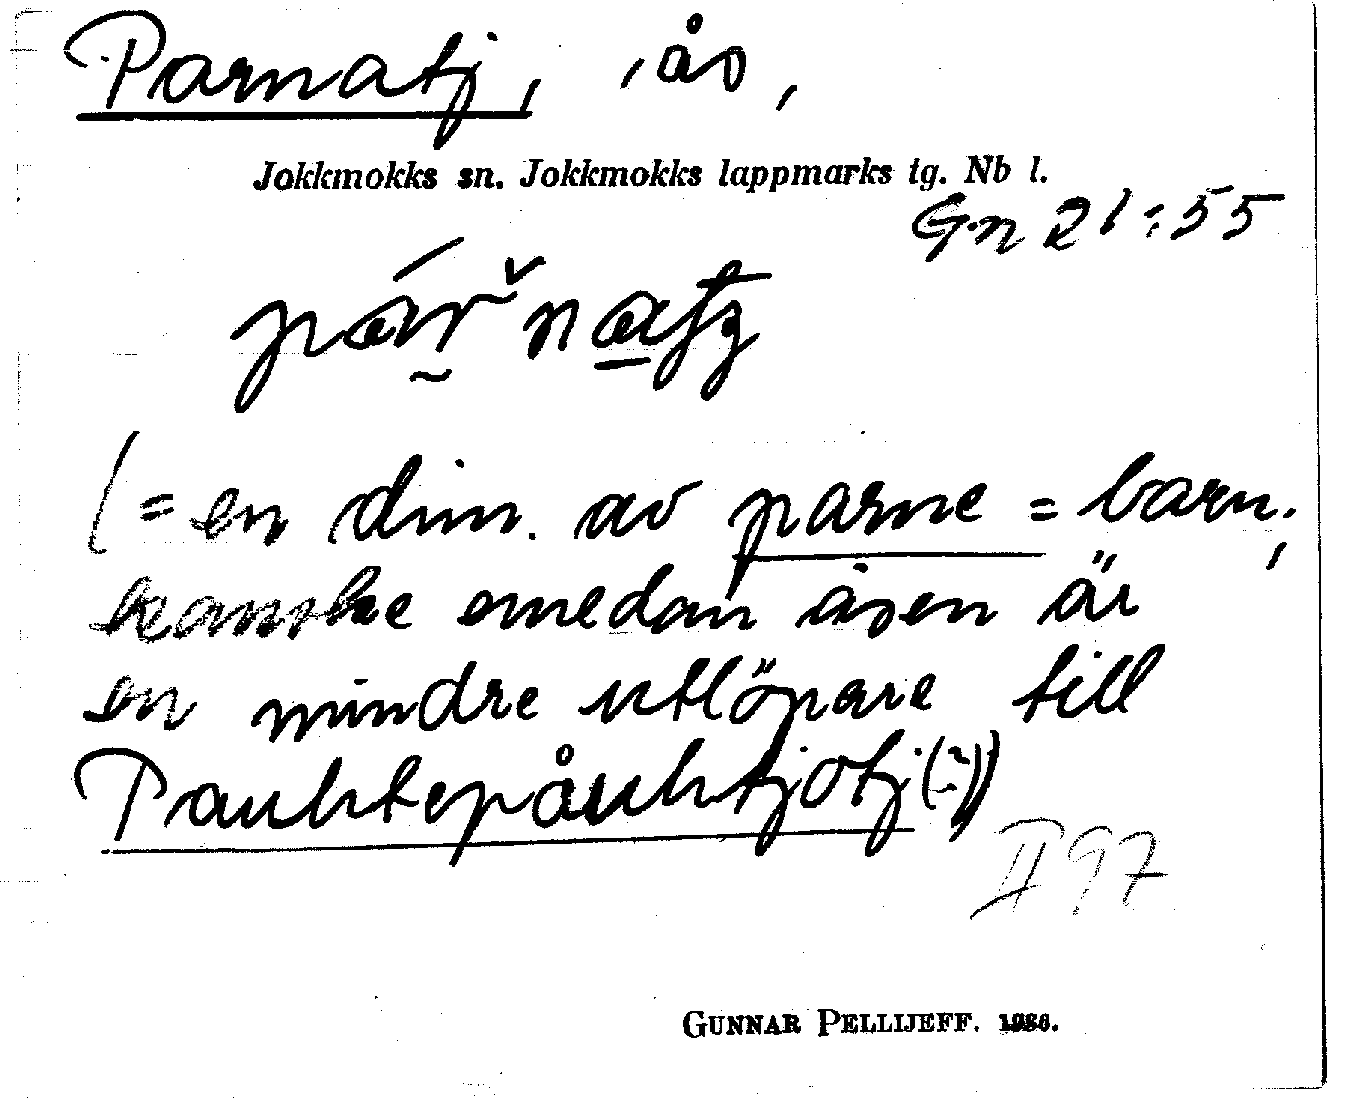 Parnatj, , ås,
Jokkmokks sn. Jokkmokks lappmarks tg. Nb l.
Gn 21:55
(= en dim. av parne = barn;
kanske emedan åsen är
en mindre utlöpare till
Pauhtepåuhtjotj (:))
II 97
GUNNAR PELLIJEFF. 1986.